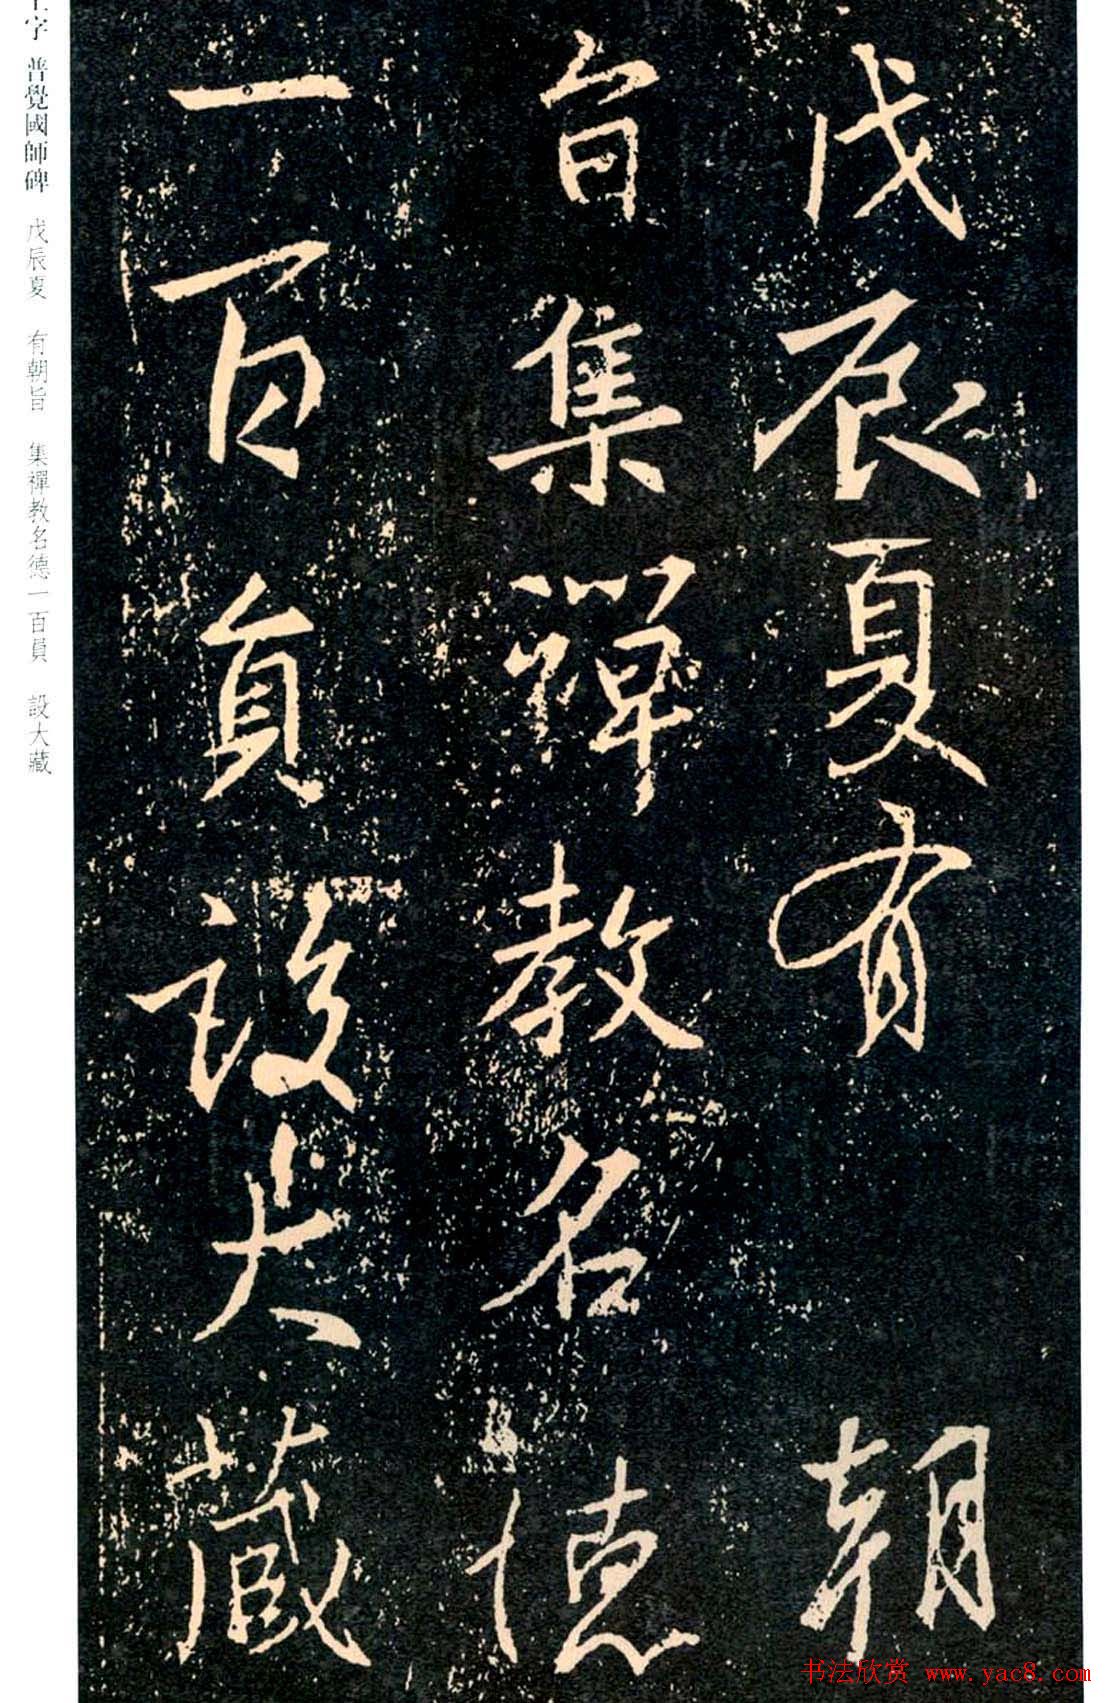 戊辰夏有 朝
旨集禪教名德
一百員設大藏
字 普覺國師碑 戊辰夏 有朝旨 集禪教名德一百員 設大藏
书法欣赏 www.yac8.com